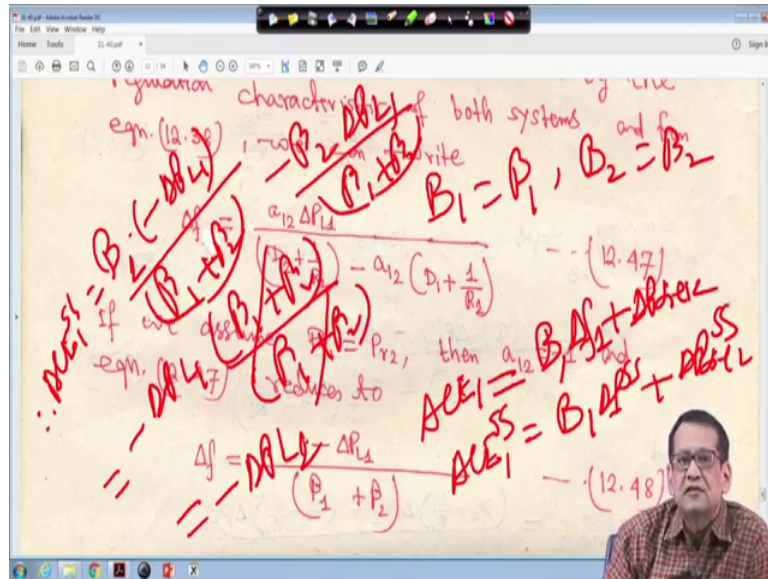 31-40.pdf - Adobe Acrobat Reader DC
File Edit View Window Help
Home Tools 31-40.pdf × Sign In
12 / 58
regulation characteristic of both systems
eqn. , write and from
B₁ = β₁ , B₂ = β₂
Δf = a₁₂ ΔP_L1 / ( ) - a₁₂ (D₁ + 1/R₂) -- (12.47)
If we assume = P_r2, then a₁₂ and
eqn. reduces to
Δf = - ΔP_L1 / (β₁ + β₂) -- (12.48)
∴ ACE₁^SS = (-ΔPL1) / (β₁ + β₂) - β₂ ΔPL1 / (β₁ + β₂)
= - ΔPL1 (β₁ + β₂) / (β₁ + β₂)
= - ΔPL1
ACE₁ = B₁ Δf₁ + ΔPtie12
ACE₁^SS = B₁ Δf^SS + ΔPtie12^SS